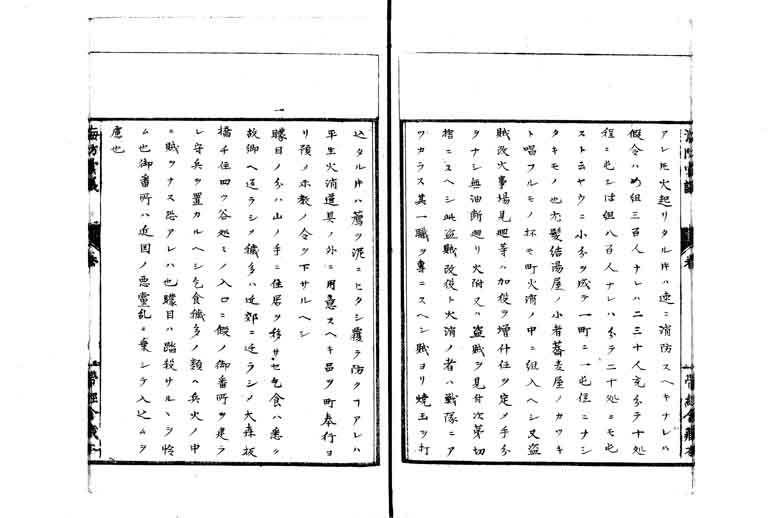 アレハ火起リタル時ハ速ニ消防スヘキナレハ
假令ハめ組三百人ナレハ二三十人充分テ十処
程ニ屯シは組八百人ナレハ分テ二十処ニモ屯
スト云ヤウニ小分ヲ成テ一町ニ一屯位ニナシ
タキモノ也尤髪結湯屋ノ小者蕎麦屋ノカツキ
ト唱フルモノ抔モ町火消ノ中ニ組入ヘシ又盗
賊改火事場見廻等ハ加役ヲ増什伍ヲ定メ手分
タナシ無油断廻リ火附又ハ盗賊ヲ見付次第切
捨ニスヘシ此盗賊改役ト火消ノ者ハ戦隊ニア
ツカラス其一職ヲ專ニスヘシ賊ヨリ焼玉ヲ打
込タル時ハ薦ヲ泥ニヒタシ覆ヲ防クヿアレハ
平生火消道具ノ外ニ用意スヘキ品ヲ町奉行ヨ
リ預メ示教ノ令ヲ下サルヘシ
矇目ノ分ハ山ノ手ニ住居ヲ移サセ乞食ハ悉ク
故郷ヘ返ラシク穢多ハ近郊ニ近ラシメ大森板
橋千住四ツ谷処ミノ入口ニ假ノ御番所ヲ建ラ
レ守兵ヲ置カルヘシ乞食穢多ノ類ハ兵火ノ中
ニ賊ヲナス恐アレハ也矇目ハ踏殺サルヽヲ怜
ム也御番所ハ近国ノ悪黨乱ニ乗シテ入込ムヲ
慮也
海防彙議
巻